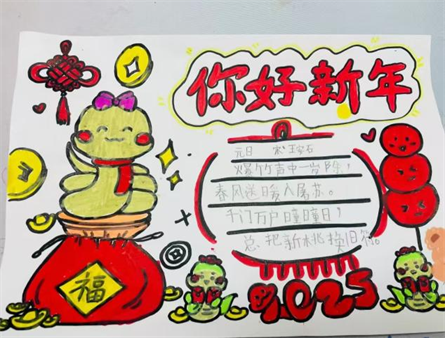 你好新年
元日 宋 王安石
爆竹声中一岁除，
春风送暖入屠苏。
千门万户曈曈日！
总把新桃换旧符。
福
2025